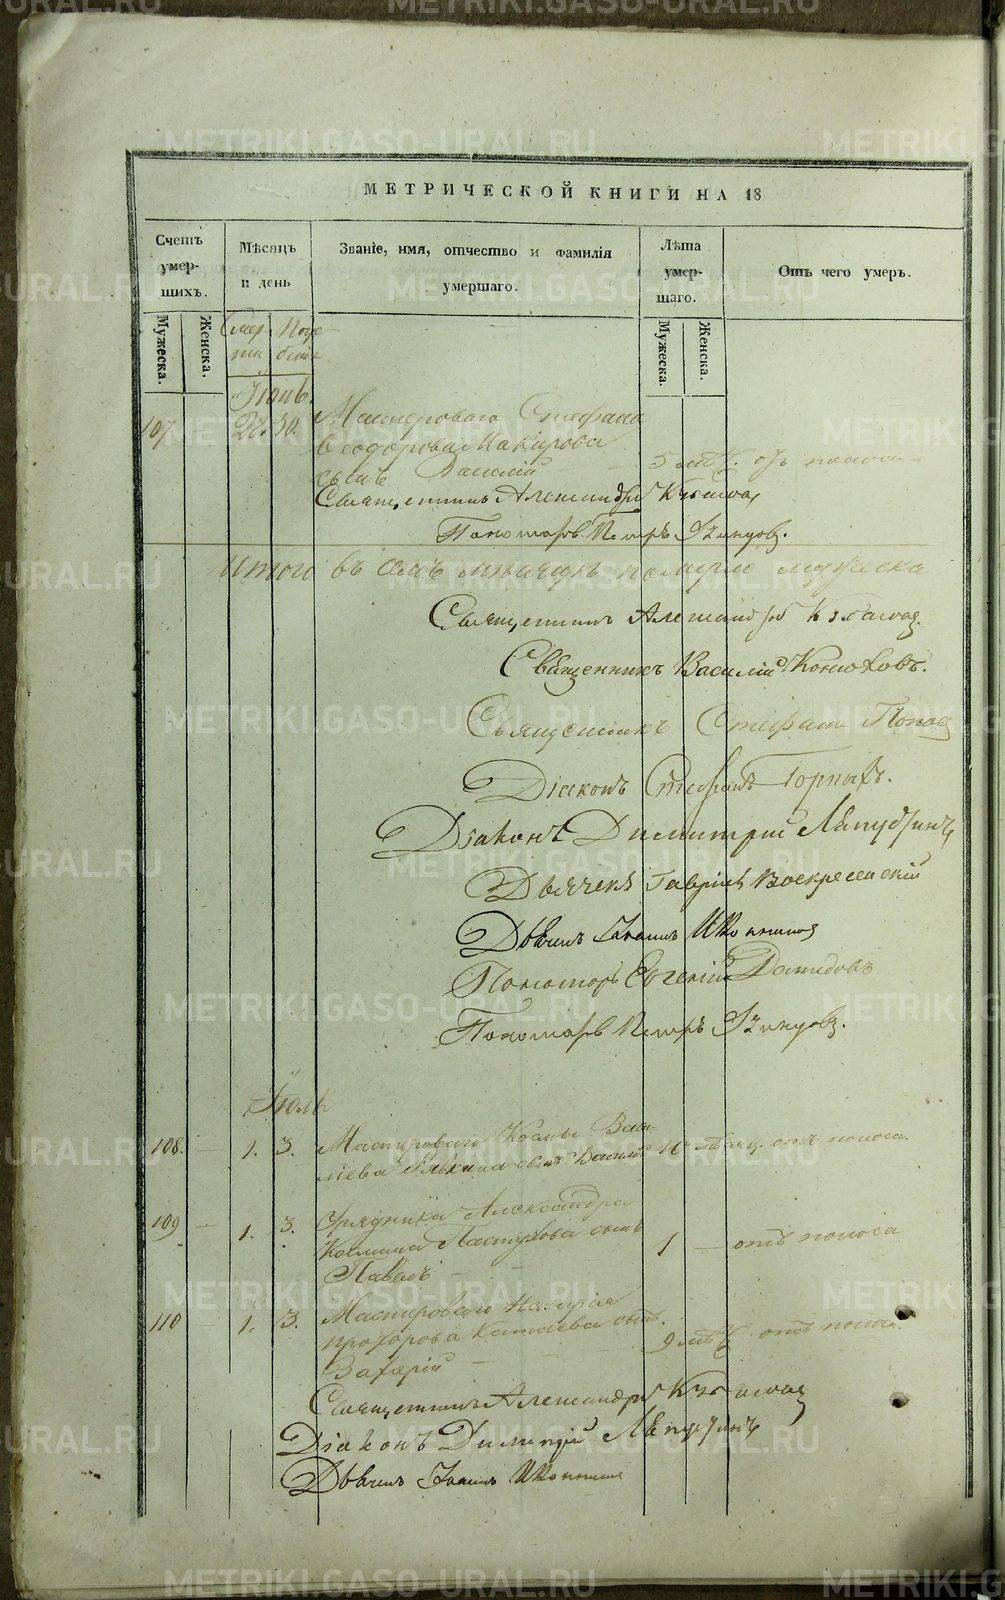 МЕТРИЧЕСКОЙ КНИГИ НА 18
Счетъ умер-шихъ.
Мѣсяцъ и день
Званіе, имя, отчество и фамилія умершаго.
Лѣта умер-шаго.
Отъ чего умеръ.
Мужеска.
Женска.
Смер-ти
Погре-бенія
Мужеска.
Женска.
Іюнь.
107 28. 30. Мастероваго Стефана
Ѳеодорова Макарова
сынъ Василій 5 мѣс. отъ поноса
Священникъ Александръ
Пономарь Петръ
Итого въ семъ мѣсяцѣ померло мужеска
Священникъ Александръ
Священникъ Василій Конюховъ.
Священникъ Стефанъ Поповъ
Діаконъ Стефанъ Горныхъ.
Діаконъ Димитрій Ляпустинъ
Дьячекъ Гавріилъ Воскресенскій
Дьячекъ Іоаннъ Иконников
Пономарь Евгеній Давидовъ
Пономарь Петръ
Іюль
108. — 1. 3. Мастероваго Козмы Васи-
лева сынъ отъ поноса.
109 — 1. 3. Урядника Александра
Козмина Пастухова сынъ
Павелъ — 1 — отъ поноса
110 1. 3. Мастероваго
Прохорова Катаева сынъ
Захарій — 9 мѣс. отъ поноса.
Священникъ Александръ
Діаконъ Димитрій Ляпустинъ
Дьячекъ Іоаннъ Иконников
METRIKI.GASO-URAL.RU